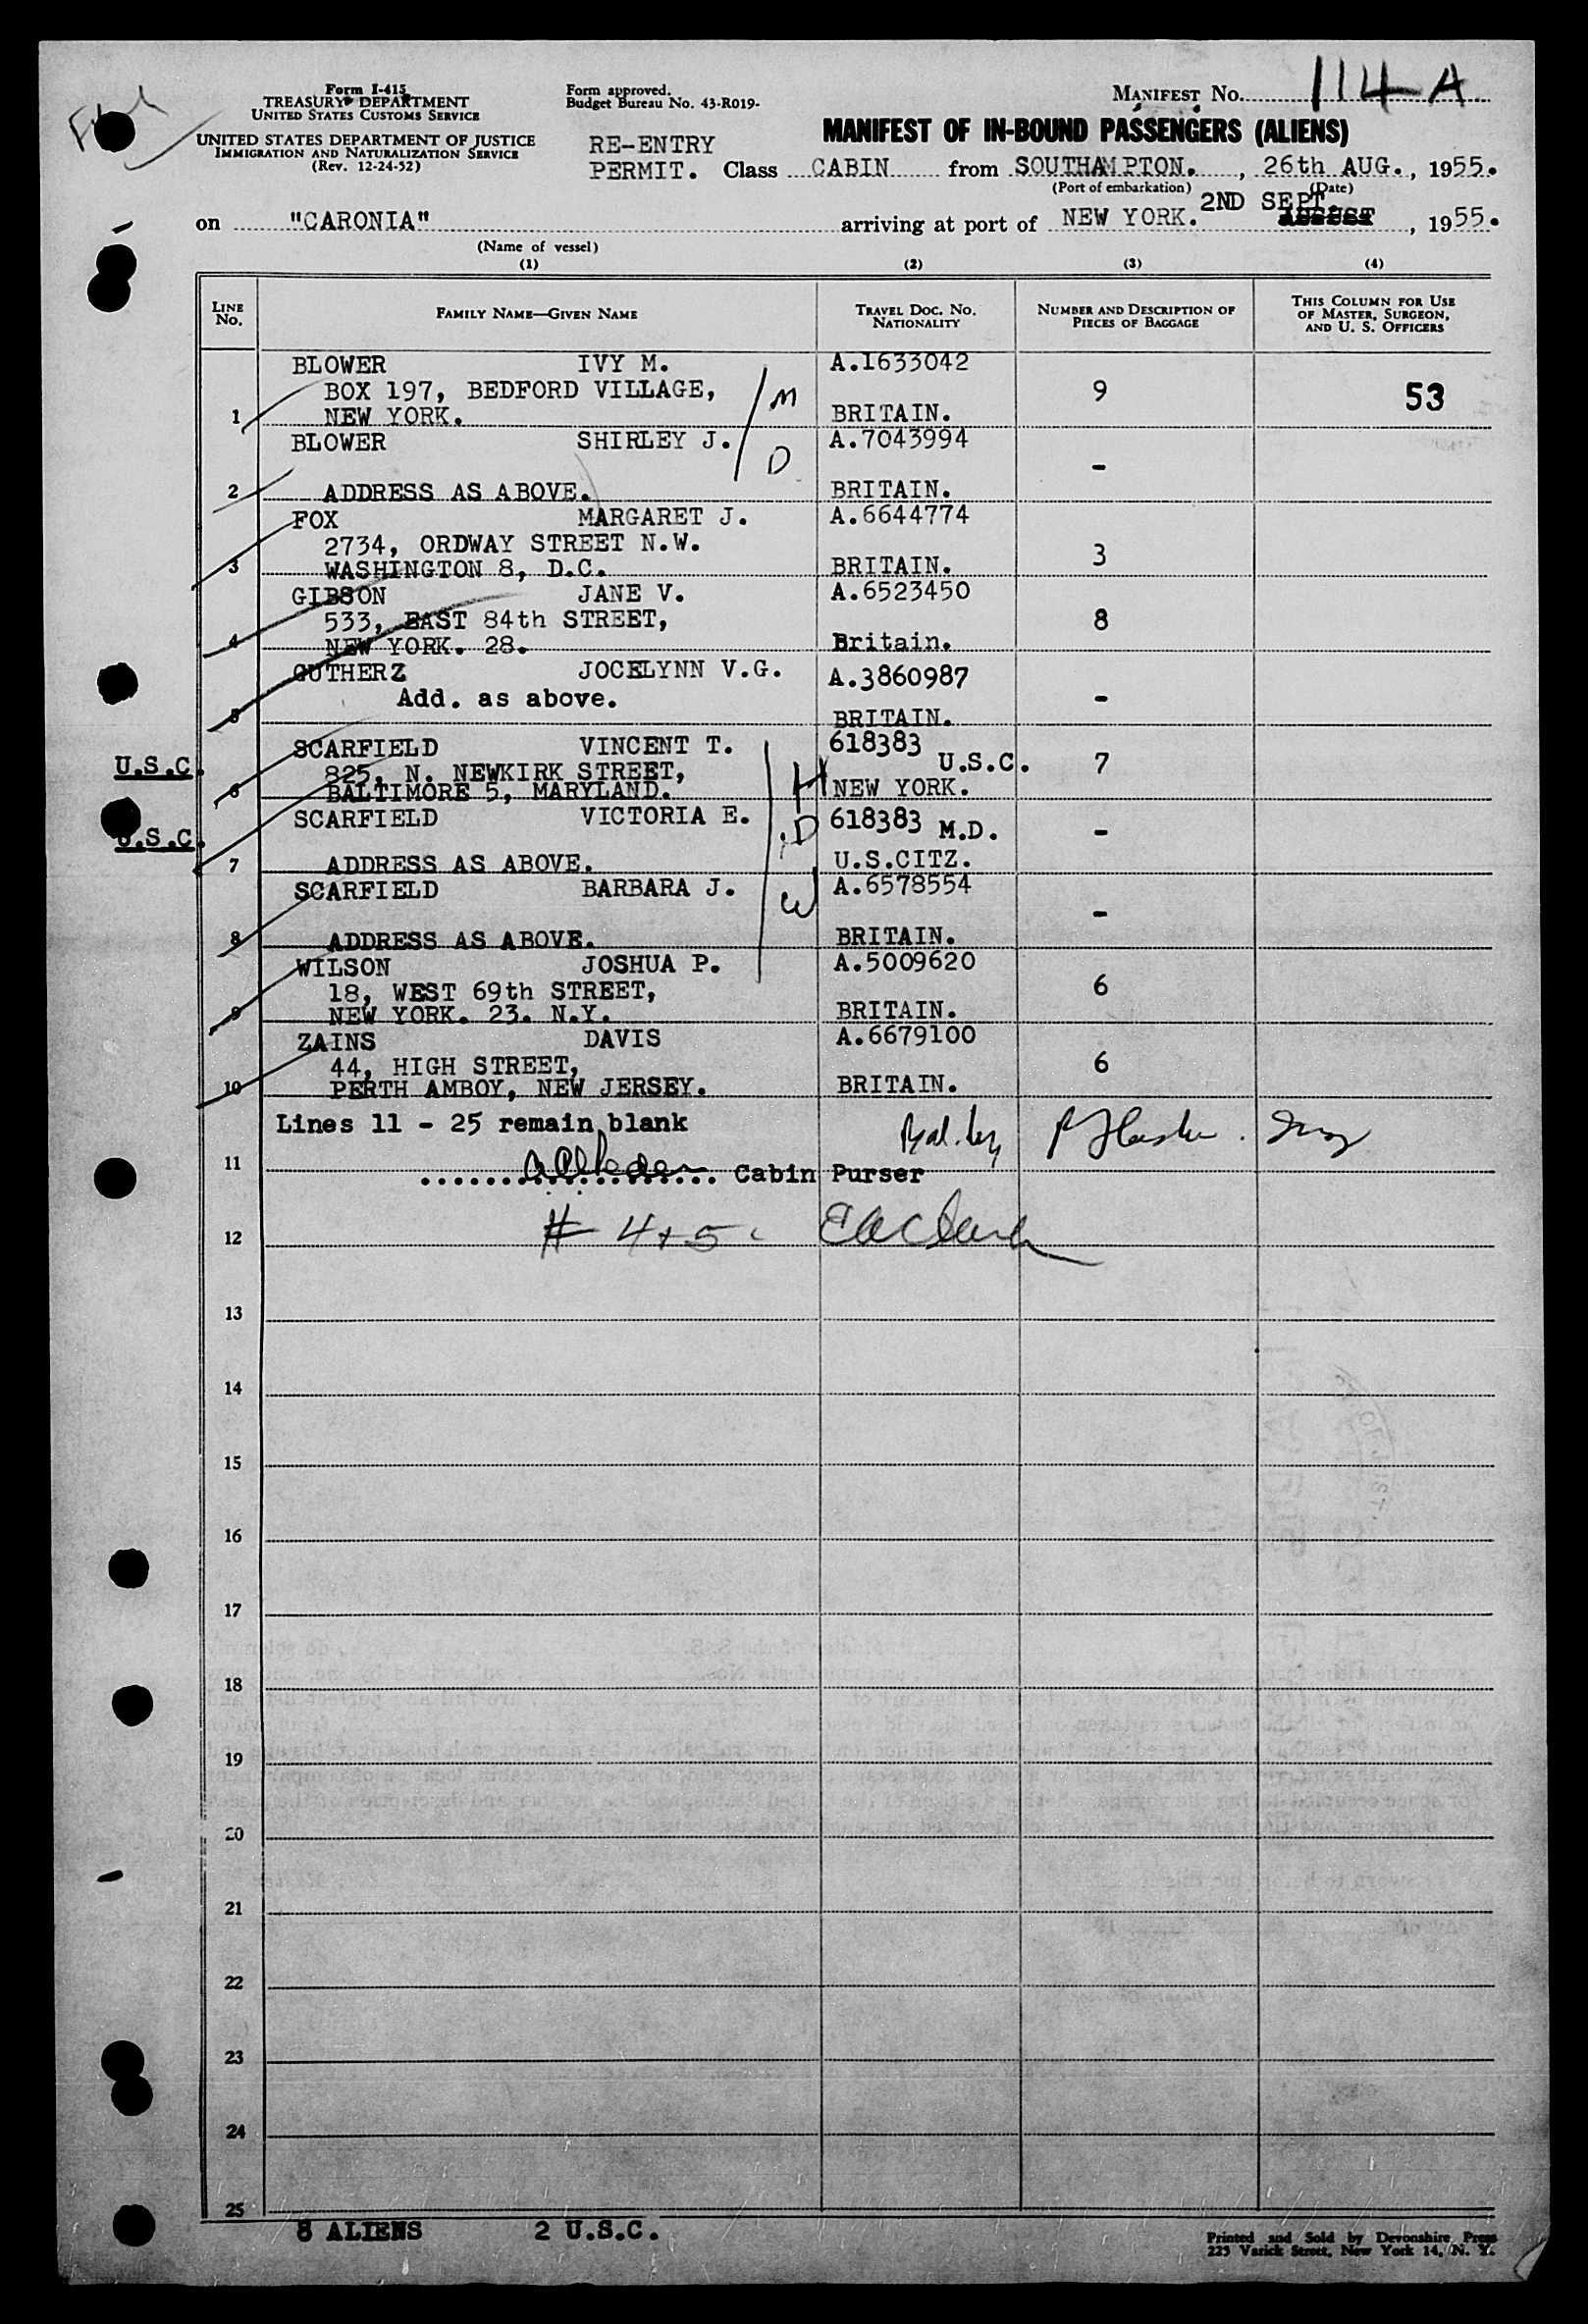 Form I-415
TREASURY DEPARTMENT
UNITED STATES CUSTOMS SERVICE
UNITED STATES DEPARTMENT OF JUSTICE
IMMIGRATION AND NATURALIZATION SERVICE
(Rev. 12-24-52)
Form approved.
Budget Bureau No. 43-R019-
MANIFEST No. 114 A
MANIFEST OF IN-BOUND PASSENGERS (ALIENS)
RE-ENTRY
PERMIT. Class CABIN from SOUTHAMPTON. , 26th AUG. , 1955.
(Port of embarkation) (Date)
2ND SEPT.
on "CARONIA" arriving at port of NEW YORK. AUGUST , 1955.
(Name of vessel)
(1) (2) (3) (4)
LINE No. FAMILY NAME—GIVEN NAME TRAVEL DOC. NO. NATIONALITY NUMBER AND DESCRIPTION OF PIECES OF BAGGAGE THIS COLUMN FOR USE OF MASTER, SURGEON, AND U. S. OFFICERS
BLOWER IVY M. A.1633042
BOX 197, BEDFORD VILLAGE, M 9 53
1 NEW YORK. BRITAIN.
BLOWER SHIRLEY J. A.7043994
D -
2 ADDRESS AS ABOVE. BRITAIN.
FOX MARGARET J. A.6644774
2734, ORDWAY STREET N.W. 3
3 WASHINGTON 8, D.C. BRITAIN.
GIBSON JANE V. A.6523450
533, EAST 84th STREET, 8
4 NEW YORK. 28. Britain.
GUTHERZ JOCELYNN V.G. A.3860987
Add. as above. -
5 BRITAIN.
SCARFIELD VINCENT T. 618383
U.S.C. 825, N. NEWKIRK STREET, H U.S.C. 7
6 BALTIMORE 5, MARYLAND. NEW YORK.
SCARFIELD VICTORIA E. D 618383 M.D. -
U.S.C.
7 ADDRESS AS ABOVE. U.S.CITZ.
SCARFIELD BARBARA J. A.6578554
W -
8 ADDRESS AS ABOVE. BRITAIN.
WILSON JOSHUA P. A.5009620
18, WEST 69th STREET, 6
9 NEW YORK. 23. N.Y. BRITAIN.
ZAINS DAVIS A.6679100
44, HIGH STREET, 6
10 PERTH AMBOY, NEW JERSEY. BRITAIN.
Lines 11 - 25 remain blank
11 Cabin Purser
12 # 4+5
13
14
15
16
17
18
19
20
21
22
23
24
25
8 ALIENS 2 U.S.C.
Printed and Sold by Devonshire Press
225 Varick Street, New York 14, N. Y.